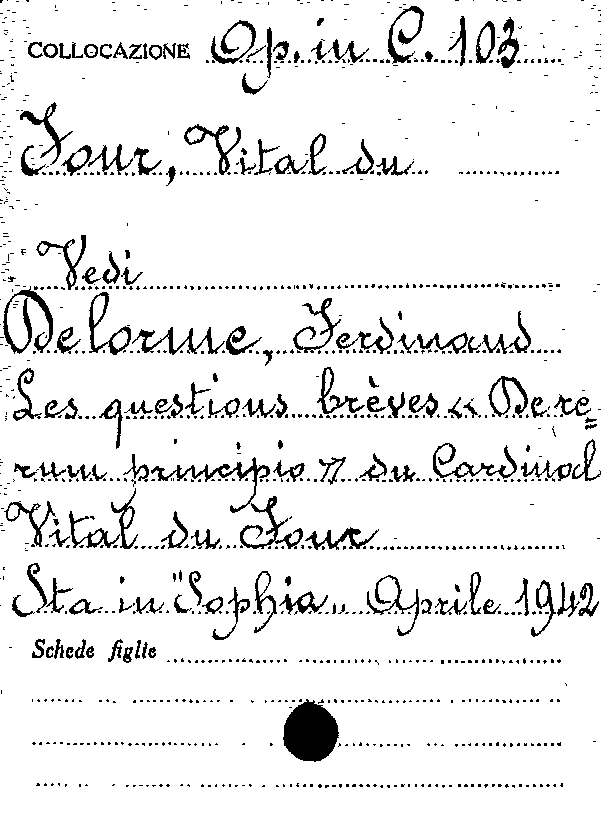 COLLOCAZIONE Op. in C. 103
Four, Vital du
Vedi
Delorme, Ferdinand
Les questions brèves « De re=
rum principio » du Cardinal
Vital du Four
Sta in "Sophia" Aprile 1942
Schede figlie